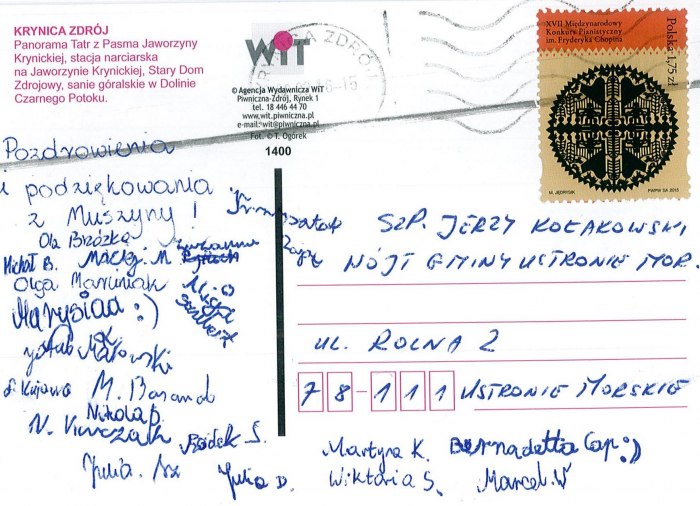 KRYNICA ZDRÓJ
Panorama Tatr z Pasma Jaworzyny
Krynickiej, stacja narciarska
na Jaworzynie Krynickiej, Stary Dom
Zdrojowy, sanie góralskie w Dolinie
Czarnego Potoku.
WiT
© Agencja Wydawnicza WiT
Piwniczna-Zdrój, Rynek 1
tel. 18 446 44 70
www.wit.piwniczna.pl
e-mail: wit@piwniczna.pl
Fot. © T. Ogórek
1400
KRYNICA ZDRÓJ
XVII Międzynarodowy
Konkurs Pianistyczny
im. Fryderyka Chopina
Polska 1,75 zł
M. JĘDRYSIK
PWPW SA 2015
Pozdrowienia
i podziękowania
z Muszyny!
Ola Brzózka
Michał B. Maciej. M
Olga Marciniak
Marysiaa :)
M. Barand
Nikola
Radek S.
Julia.
Julia D.
Martyna K. Bernadetta :)
Wiktoria S. Marcel. W
SZP. JERZY KOŁAKOWSKI
WÓJT GMINY USTRONIE MOR.
UL. ROLNA 2
78-111 USTRONIE MORSKIE